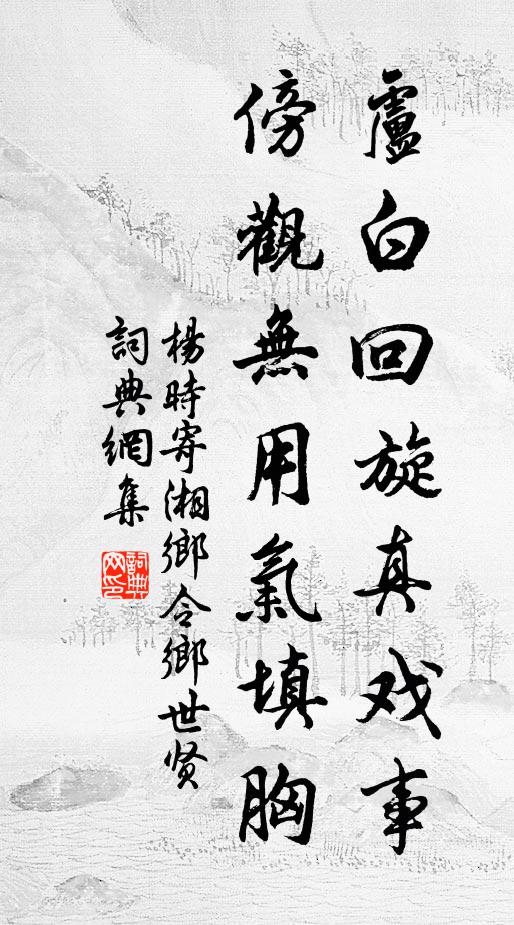 盧白回旋真戏事
傍觀無用氣填胸
楊時寄湘鄉令鄉世贤
詞典網集
詞典网印